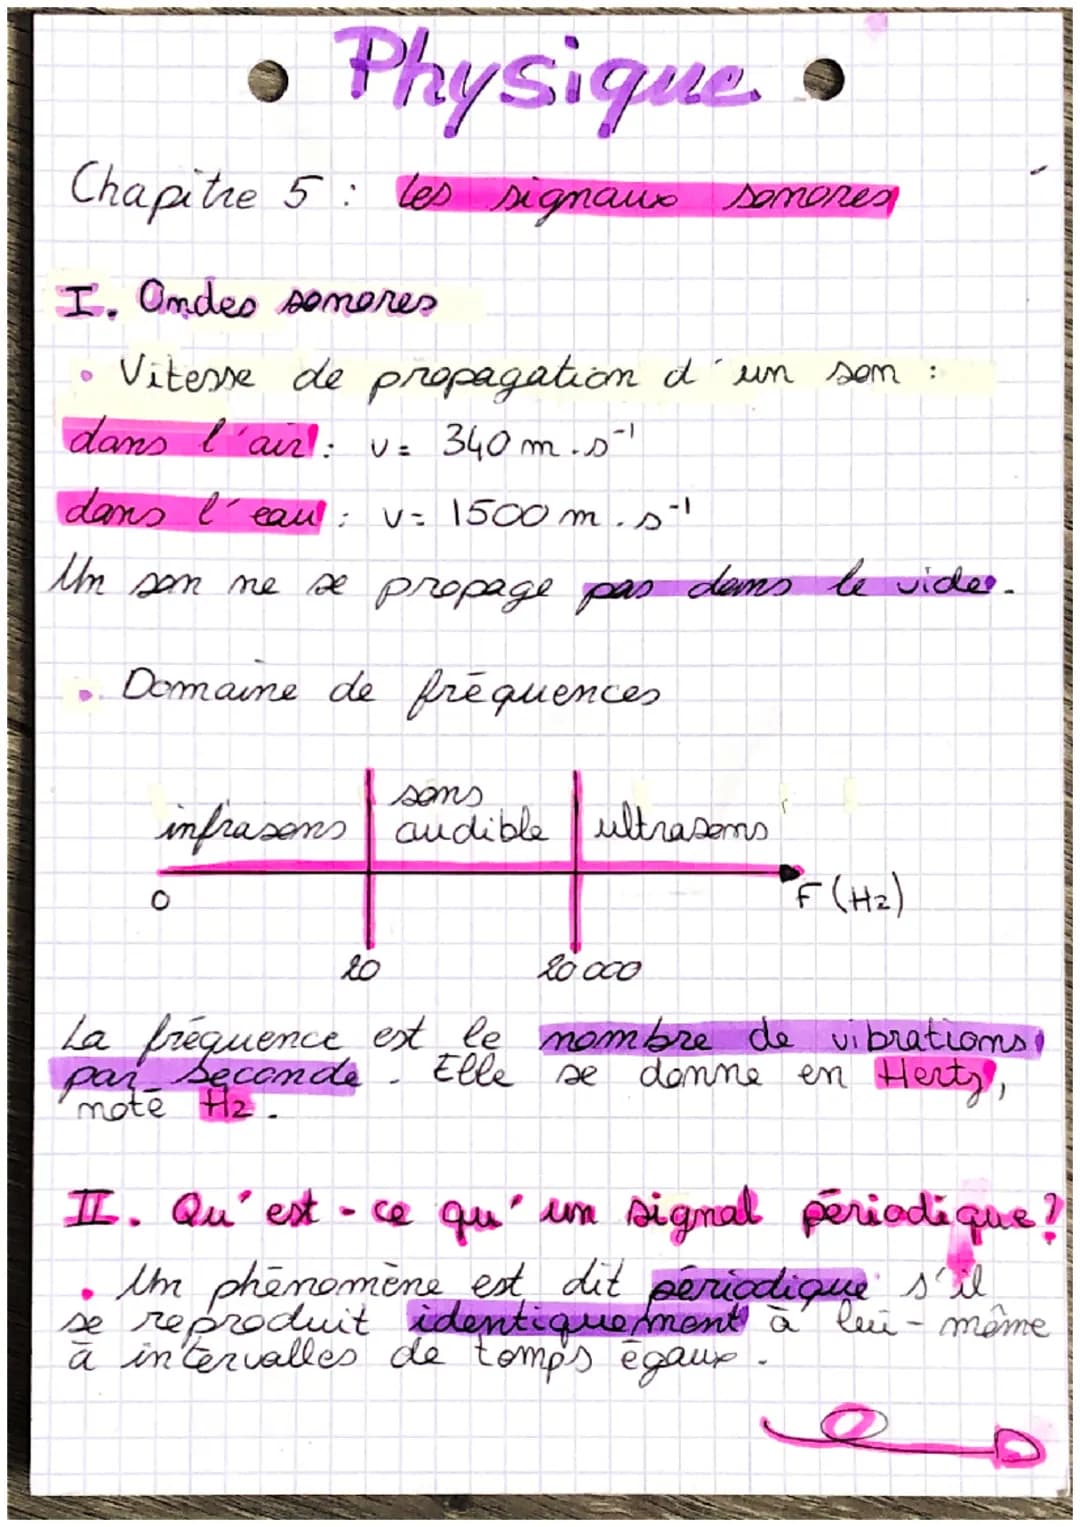 Physique
Chapitre 5 : les signaux sonores
I. Ondes sonores
• Vitesse de propagation d'un son :
dans l'air : v = 340 m.s⁻¹
dans l'eau : v = 1500 m.s⁻¹
Un son ne se propage pas dans le vide.
• Domaine de fréquences
infrasons sons audible ultrasons
0 F (Hz)
20 20 000
La fréquence est le nombre de vibrations
par seconde. Elle se donne en Hertz,
noté Hz.
II. Qu'est-ce qu'un signal périodique ?
• Un phénomène est dit périodique s'il
se reproduit identiquement à lui-même
à intervalles de temps égaux.